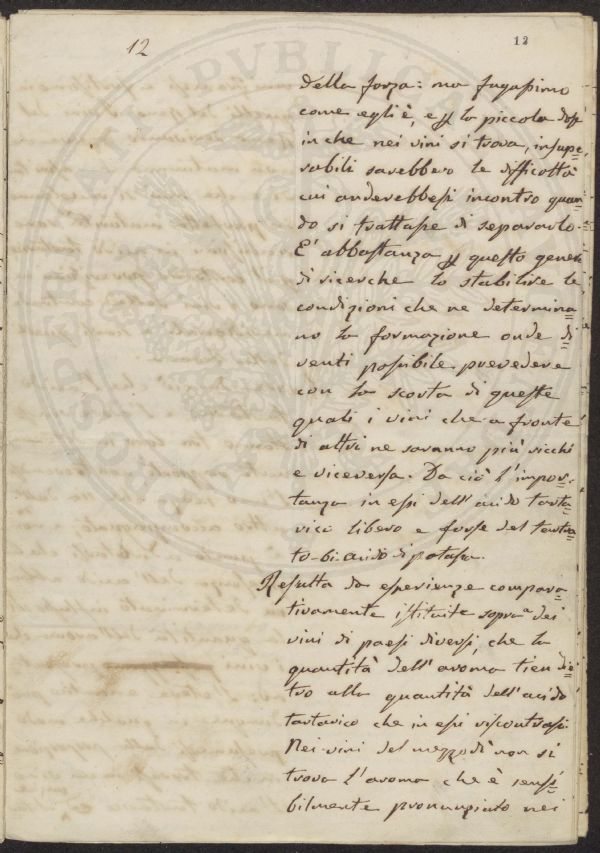 12
12
della forza: ma fugassimo
come egli è, e p la piccola dose
in che nei vini si trova, insupe=
rabili sarebbero le difficoltà
cui anderebbesi incontro quan=
do si trattasse di separarlo.
E' abbastanza p questo genere
di ricerche lo stabilire le
condizioni che ne determina=
no la formazione onde di=
venti possibile prevedere
con la scorta di queste
quali i vini che a fronte
di altri ne saranno più ricchi
e viceversa. Da ciò l'impor=
tanza in essi dell'acido tarta=
rico libero e forse del tartra=
to-bi-acido di potassa.
Resulta da esperienze compara=
tivamente istituite sopra dei
vini di paesi diversi, che la
quantità dell'aroma tien die=
tro alla quantità dell'acido
tartarico che in essi riscontrasi.
Nei vini del mezzodì non si
trova l'aroma che è sensi=
bilmente pronunziato nei
PROSPERITATI PVBLICAE